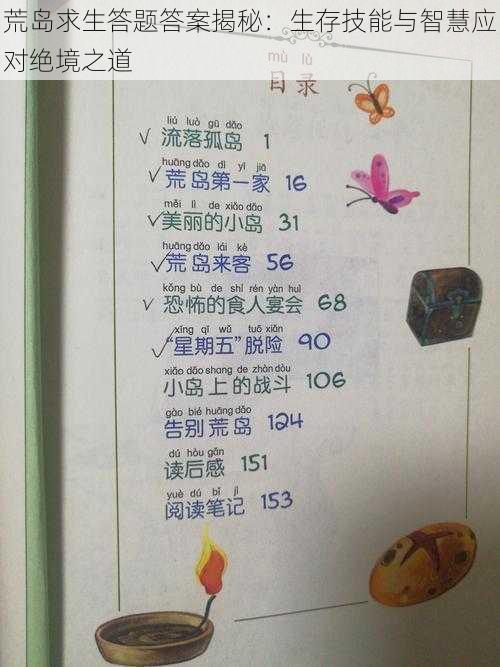 荒岛求生答题答案揭秘：生存技能与智慧应
对绝境之道
mù lù
目录
liú luò gū dǎo
流落孤岛 1
huāng dǎo dì yī jiā
荒岛第一家 16
měi lì de xiǎo dǎo
美丽的小岛 31
huāng dǎo lái kè
荒岛来客 56
kǒng bù de shí rén yàn huì
恐怖的食人宴会 68
xīng qī wǔ tuō xiǎn
“星期五”脱险 90
xiǎo dǎo shang de zhàn dòu
小岛上的战斗 106
gào bié huāng dǎo
告别荒岛 124
dú hòu gǎn
读后感 151
yuè dú bǐ jì
阅读笔记 153